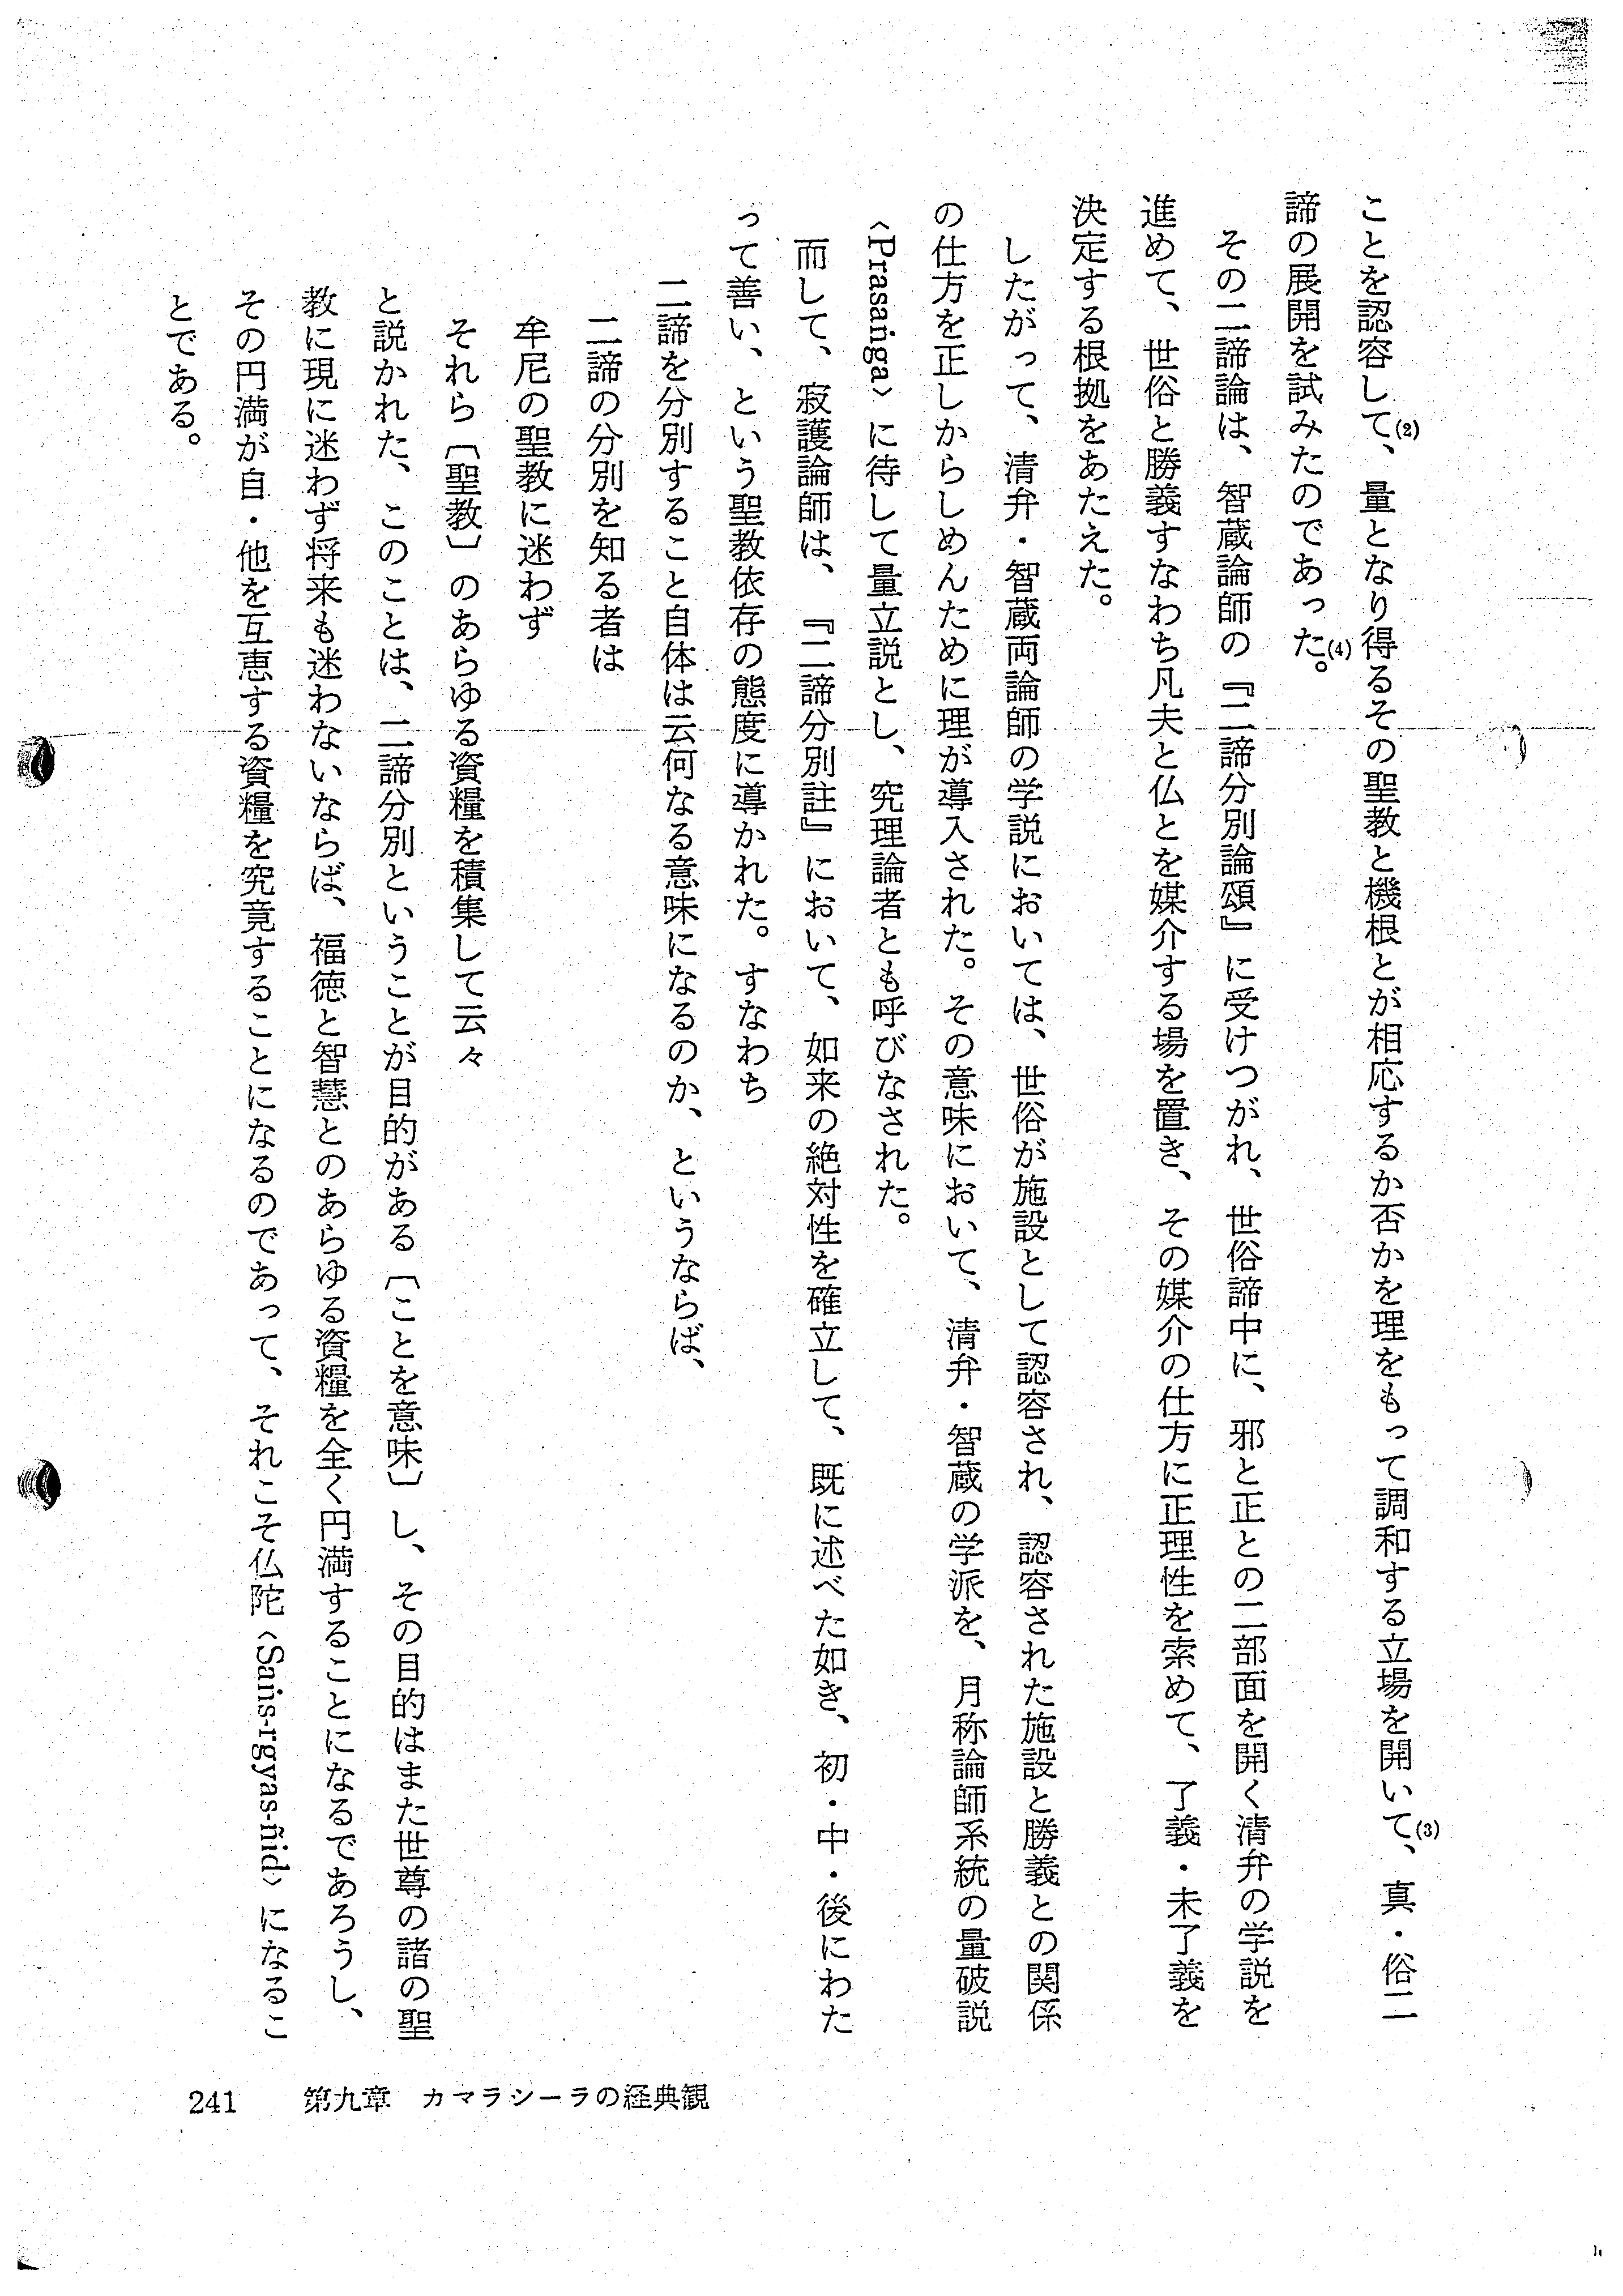 ことを認容して、(2)量となり得るその聖教と機根とが相応するか否かを理をもって調和する立場を開いて、(3)真・俗二
諦の展開を試みたのであった。(4)
その二諦論は、智蔵論師の『二諦分別論頌』に受けつがれ、世俗諦中に、邪と正との二部面を開く清弁の学説を
進めて、世俗と勝義すなわち凡夫と仏とを媒介する場を置き、その媒介の仕方に正理性を索めて、了義・未了義を
決定する根拠をあたえた。
したがって、清弁・智蔵両論師の学説においては、世俗が施設として認容され、認容された施設と勝義との関係
の仕方を正しからしめんために理が導入された。その意味において、清弁・智蔵の学派を、月称論師系統の量破説
〈Prasaṅga〉に待して量立説とし、究理論者とも呼びなされた。
而して、寂護論師は、『二諦分別註』において、如来の絶対性を確立して、既に述べた如き、初・中・後にわた
って善い、という聖教依存の態度に導かれた。すなわち
二諦を分別すること自体は云何なる意味になるのか、というならば、
二諦の分別を知る者は
牟尼の聖教に迷わず
それら〔聖教〕のあらゆる資糧を積集して云々
と説かれた、このことは、二諦分別ということが目的がある〔ことを意味〕し、その目的はまた世尊の諸の聖
教に現に迷わず将来も迷わないならば、福徳と智慧とのあらゆる資糧を全く円満することになるであろうし、
その円満が自・他を互恵する資糧を究竟することになるのであって、それこそ仏陀〈Saṅs-rgyas-ñid〉になるこ
とである。
241 第九章 カマラシーラの経典観